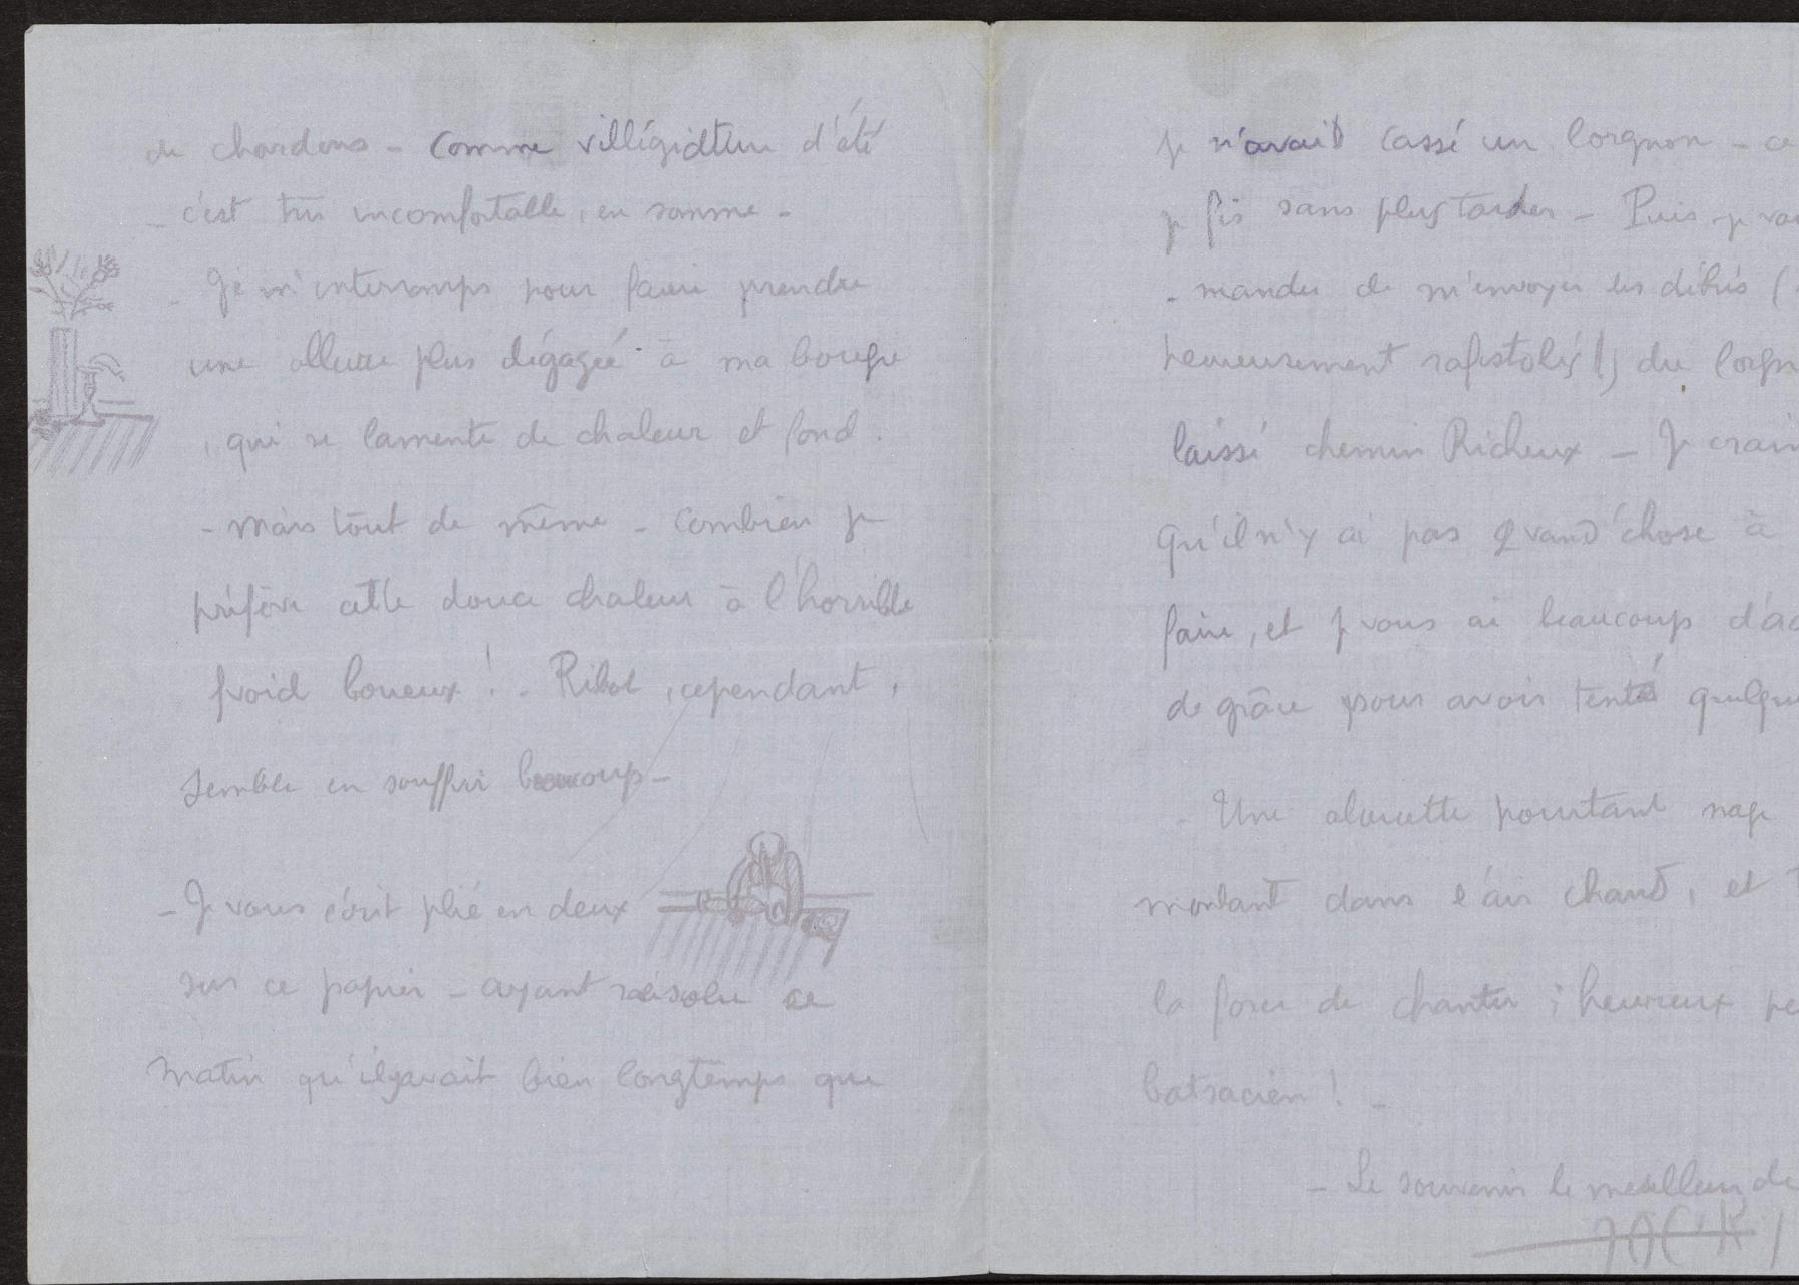 de chardons - Comme villégiature d'été
- c'est très incomfortable, en somme -
- Je m'interromps pour faire prendre
une allure plus dégagée à ma bougie
, qui se lamente de chaleur et fond.
- mais tout de même - combien je
préfère cette douce chaleur à l'horrible
froid boueux ! - Ribot, cependant,
semble en souffrir beaucoup -
- Je vous écrit plié en deux
sur ce papier - ayant résolu ce
matin qu'il y avait bien longtemps que
je n'avait cassé un lorgnon - ce
je fis sans plus tarder - Puis je
- mander de m'envoyer les débris (
heureusement rafistolés !) du
laissé chemin Richeux - Je
qu'il n'y ai pas grand'chose à
faire, et je vous ai beaucoup
de grâce pour avoir tenté
- Une alouette pourtant nage
montant dans l'air chaud, et
la force de chanter ; heureux
batracien ! -
- Le souvenir le meilleur de